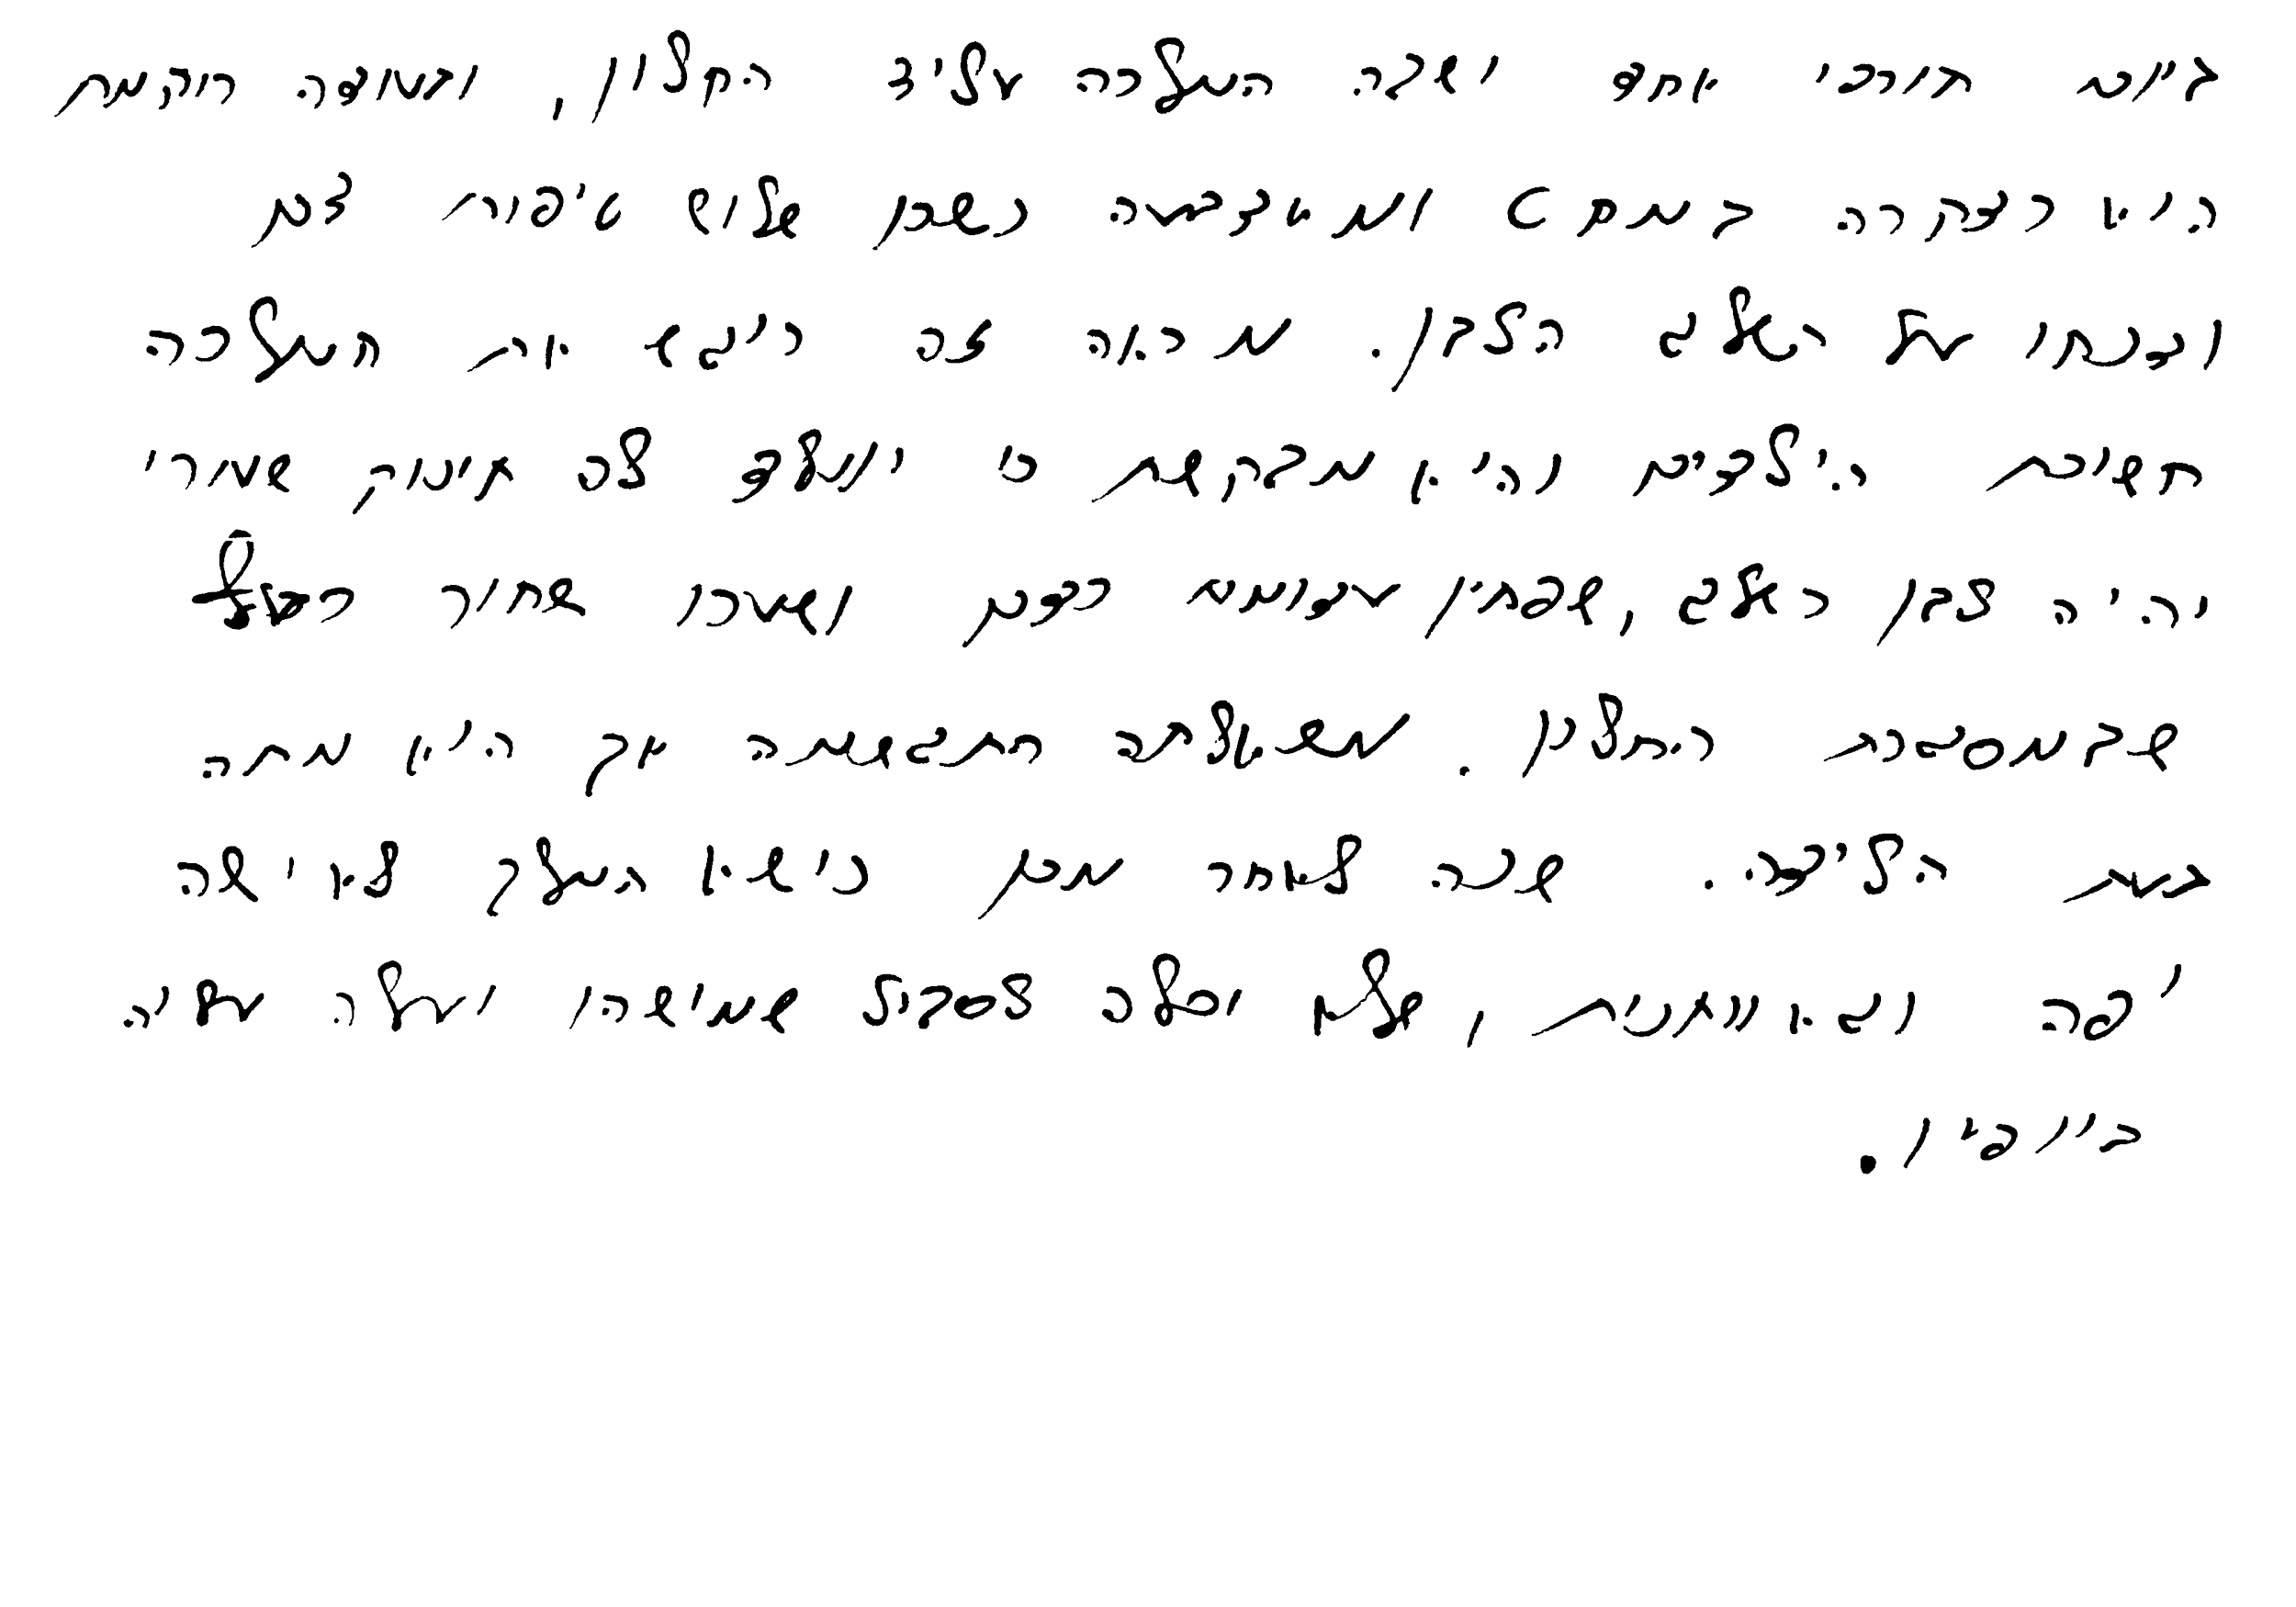 ביום חורפי אחד ישבה המלכה על יד החלון, ובעודה רוקמת
היא נדקרה במחט ומאצבעה נשרו שלוש טיפות דם
וצנחו על השלג הלבן. מראה זה ריגש את המלכה
חשוכת הילדים והיא מבקשת כי ייוולד לה תינוק שעורו
יהיה לבן כשלג, שפתיו אדומות כדם ושערו שחור כמו
שבמסגרת החלון. משאלתה התגשמה אך היא מתה
בעת הלידה. שנה לאחר מכן נישא המלך לאישה
יפה וגאוותנית, שלא יכלה לסבול שמישהו יעלה עליה
ביופיו.